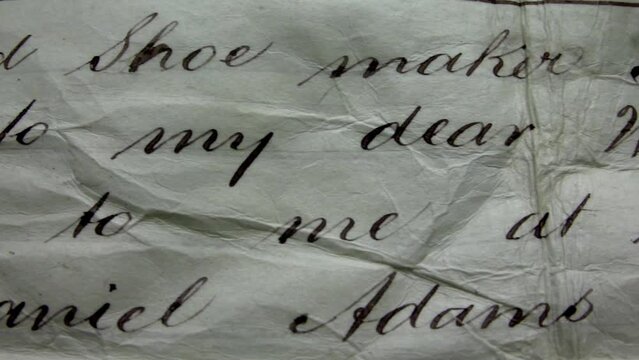 d Shoe maker
to my dear W
to me at
aniel Adams